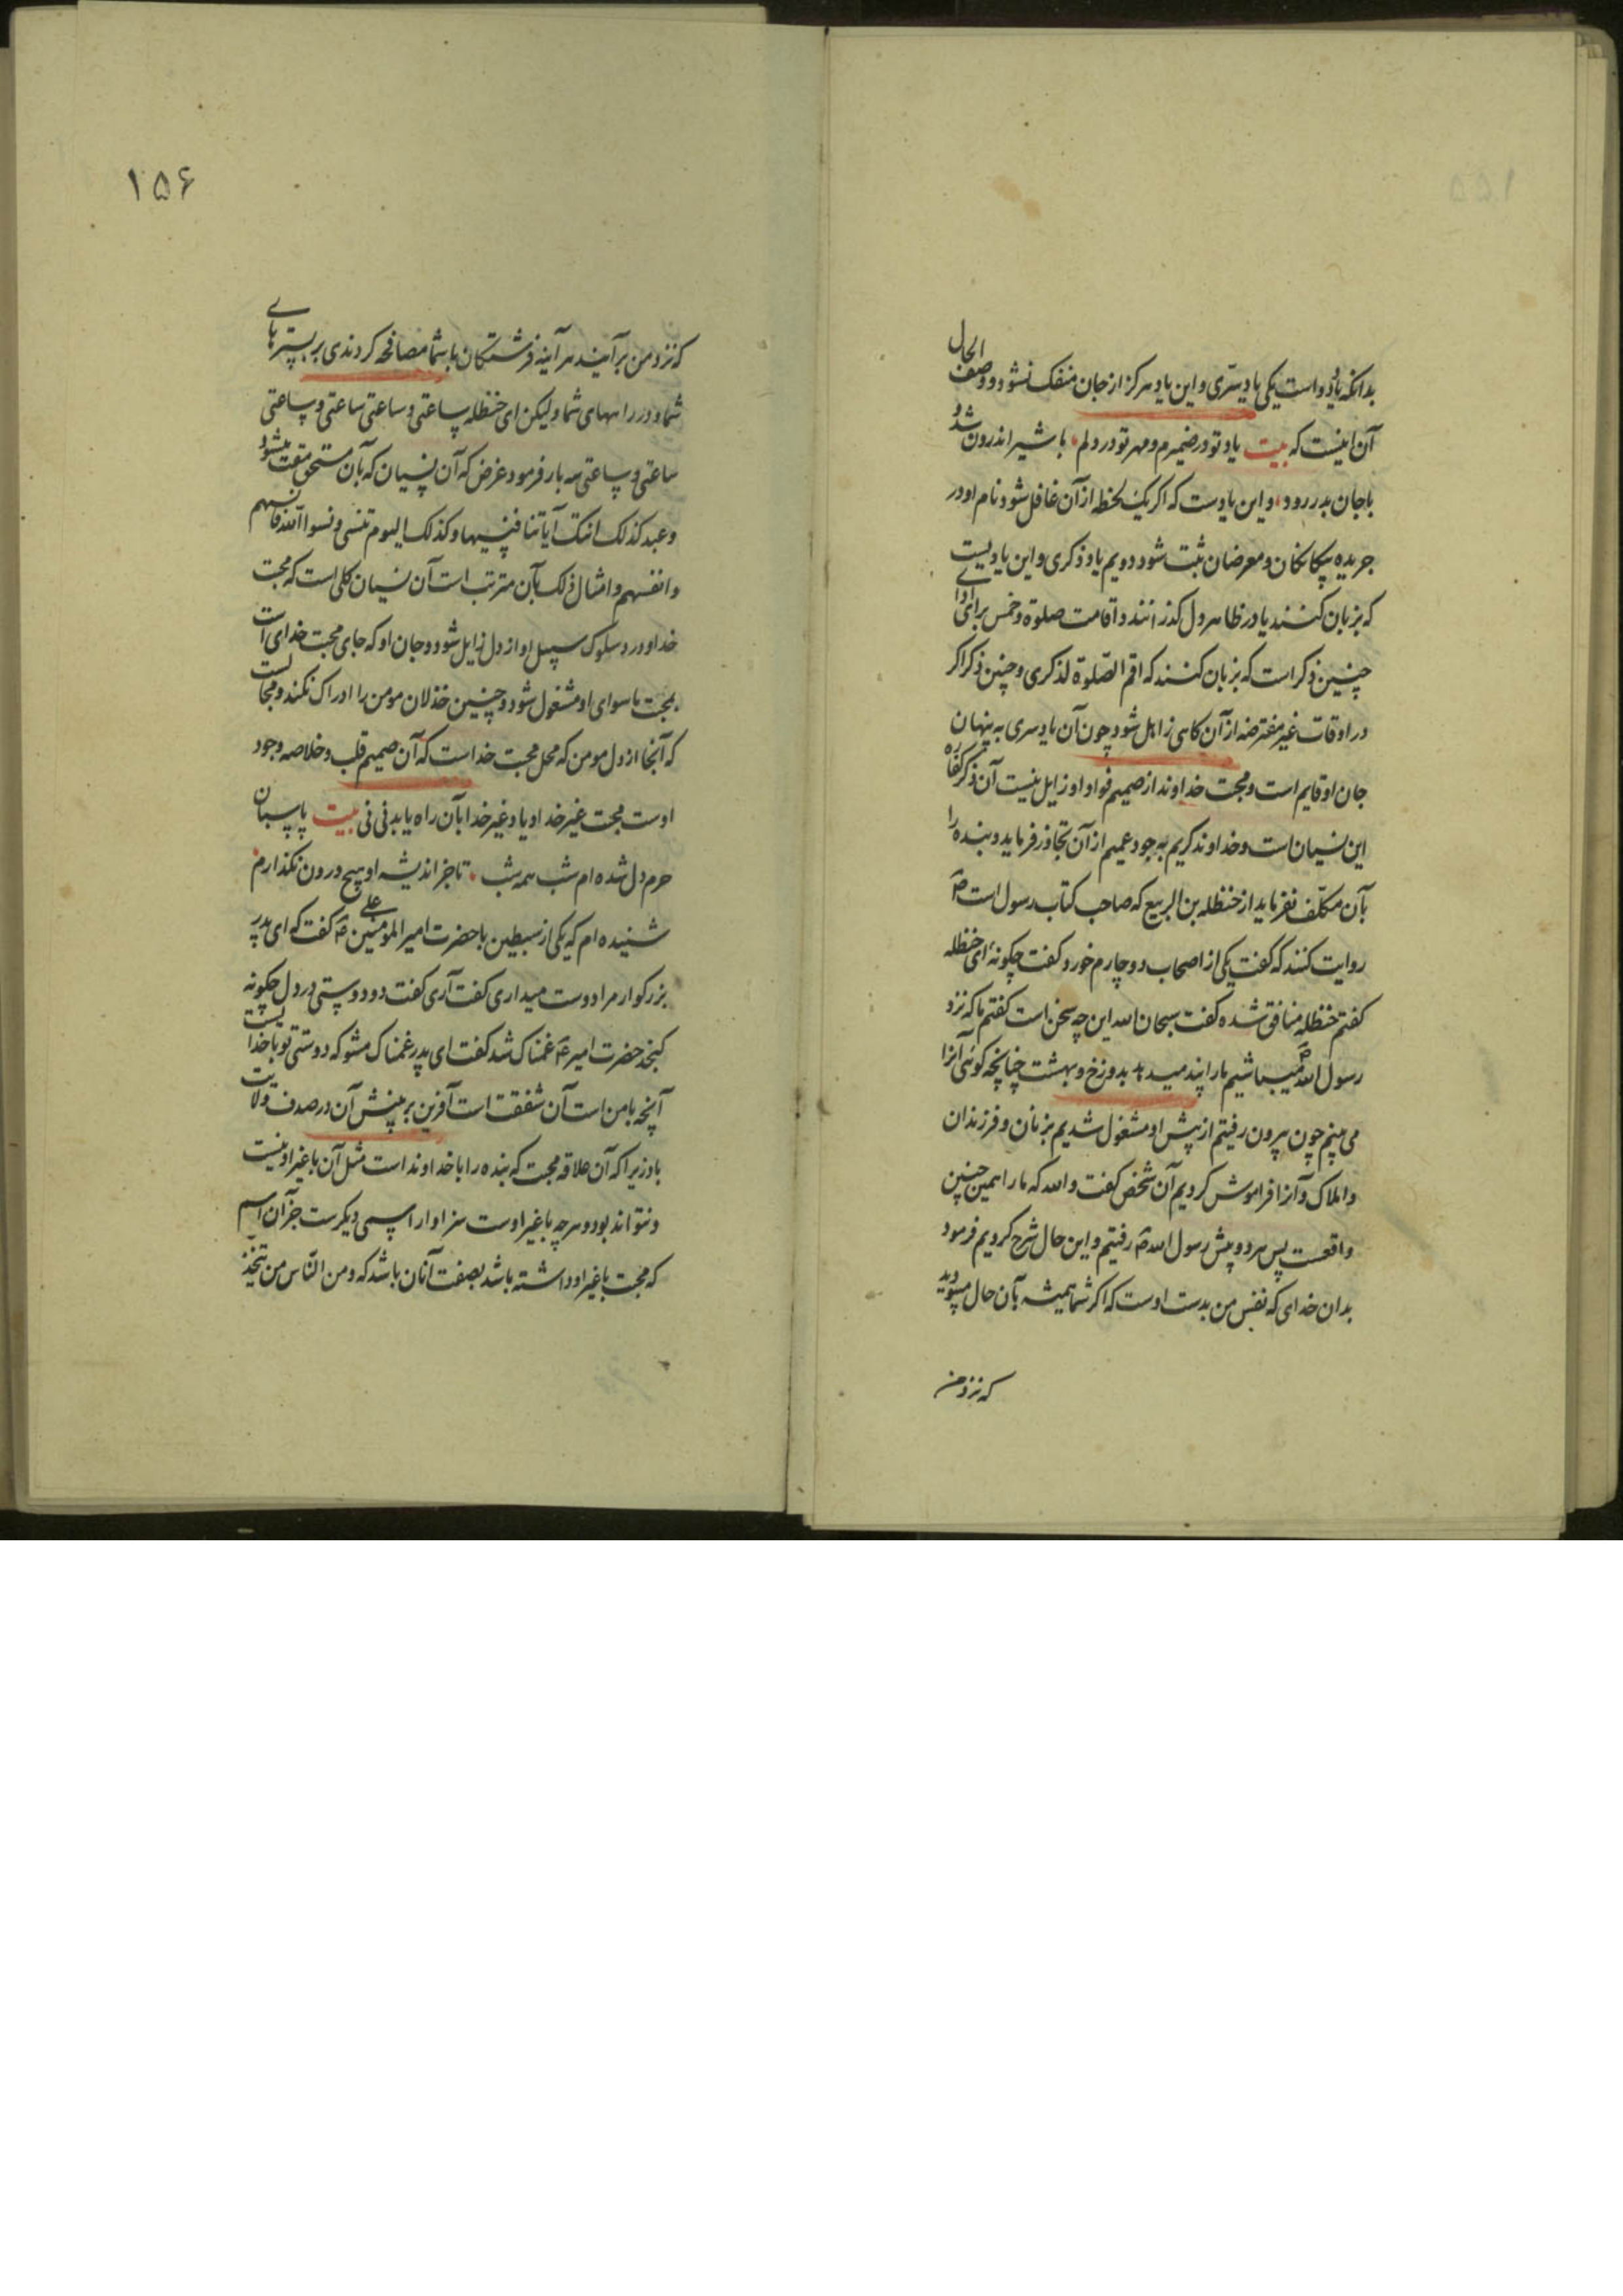 بدانکه یاد دو است یکی یاد سرّی و این یاد هرکز از جان منفک نشود و وصف الحال
آن اینست که بیت یاد تو در ضمیرم و مهر تو در دلم با شیر اندرون شد و
با جان بدر رود و این یادست که اکر یک لحظه از آن غافل شود نام او در
جریده بیکانکان و معرضان ثبت شود دویم یاد ذکری و این یادیست
که بزبان کنند یا در ظاهر دل کذرانند و اقامت صلوة و خمس برای ادای
چنین ذکر است که بزبان کنند که اقم الصّلوة لذکری و چنین ذکر اکر
در اوقات غیر مفترضه از آن کاهی زاهل شود چون آن یاد سری به پنهان
جان او قایم است و محبت خداوند از صمیم فواد او زایل نیست آن ذکر کفاره
این نسیان است و خداوند کریم به جود عمیم از آن تجاوز فرماید و بنده را
بآن مکلّف نفرماید از حنظله بن الربیع که صاحب کتاب رسول است ص
روایت کنند که کفت یکی از اصحاب دوچارم خورد و کفت چکونهٔ ای حنظله
کفتم حنظله منافق شده کفت سبحان الله این چه سخن است کفتم ما که نزد
رسول الله ص میباشیم ما را پند میدهد بدوزخ و بهشت چنانچه کوئی آنرا
می بینم چون بیرون رفتیم از پیش او مشغول شدیم بزنان و فرزندان
و املاک و آنرا فراموش کردیم آن شخص کفت والله که ما را همین چنین
واقعست پس هر دو پیش رسول الله ص رفتیم و این حال شرح کردیم فرمود
بدان خدای که نفس من بدست اوست که اکر شما همیشه بآن حال میبودید
که نزد من
۱۵۶
که نزد من برآیند هر آینه فرشتکان با شما مصافحه کردندی بر بسترهای
شما و در راههای شما ولیکن ای حنظله ساعتی و ساعتی ساعتی و ساعتی
ساعتی و ساعتی سه بار فرمود غرض که آن نسیان که بآن مستحق مقت میشود
و عبد کذلک اتتک آیاتنا فنسیتها و کذلک الیوم تنسی و نسوا الله فانسیهم
و انفسهم و امثال ذلک بآن مترتب است آن نسیان کلی است که محبت
خدا و درد سلوک سبیل او از دل زایل شود و جان او که جای محبت خدای است
بمحبت ما سوای او مشغول شود و چنین خذلان مومن را ادراک نکند و محالست
که آنجا از دل مومن که محل محبت خداست که آن صمیم قلب و خلاصه وجود
اوست محبت غیر خدا و یاد غیر خدا بآن راه یابد فی فی بیت پاسبان
حرم دل شده ام شب همه شب تا جز اندیشه او هیچ درون نکذارم
شنیده ام که یکی از سبطین با حضرت امیر المومنین علی ع کفت که ای پدر
بزرکوار مرا دوست میداری کفت آری کفت دو دوستی در دل چکونه
کنجد حضرت امیر ع غمناک شد کفت ای پدر غمناک مشو که دوستی تو با خداست
آنچه با من است آن شفقت است آفرین بر بینش آن در صدف ولایت
باد زیرا که آن علاقه محبت که بنده را با خداوند است مثل آن با غیر او نیست
و نتواند بود و هر چه با غیر اوست سزاوار اسمی دیکرست جز آن اسم
که محبت با غیر او داشته باشد بصفت آنان باشد که و من النّاس من یتخذ